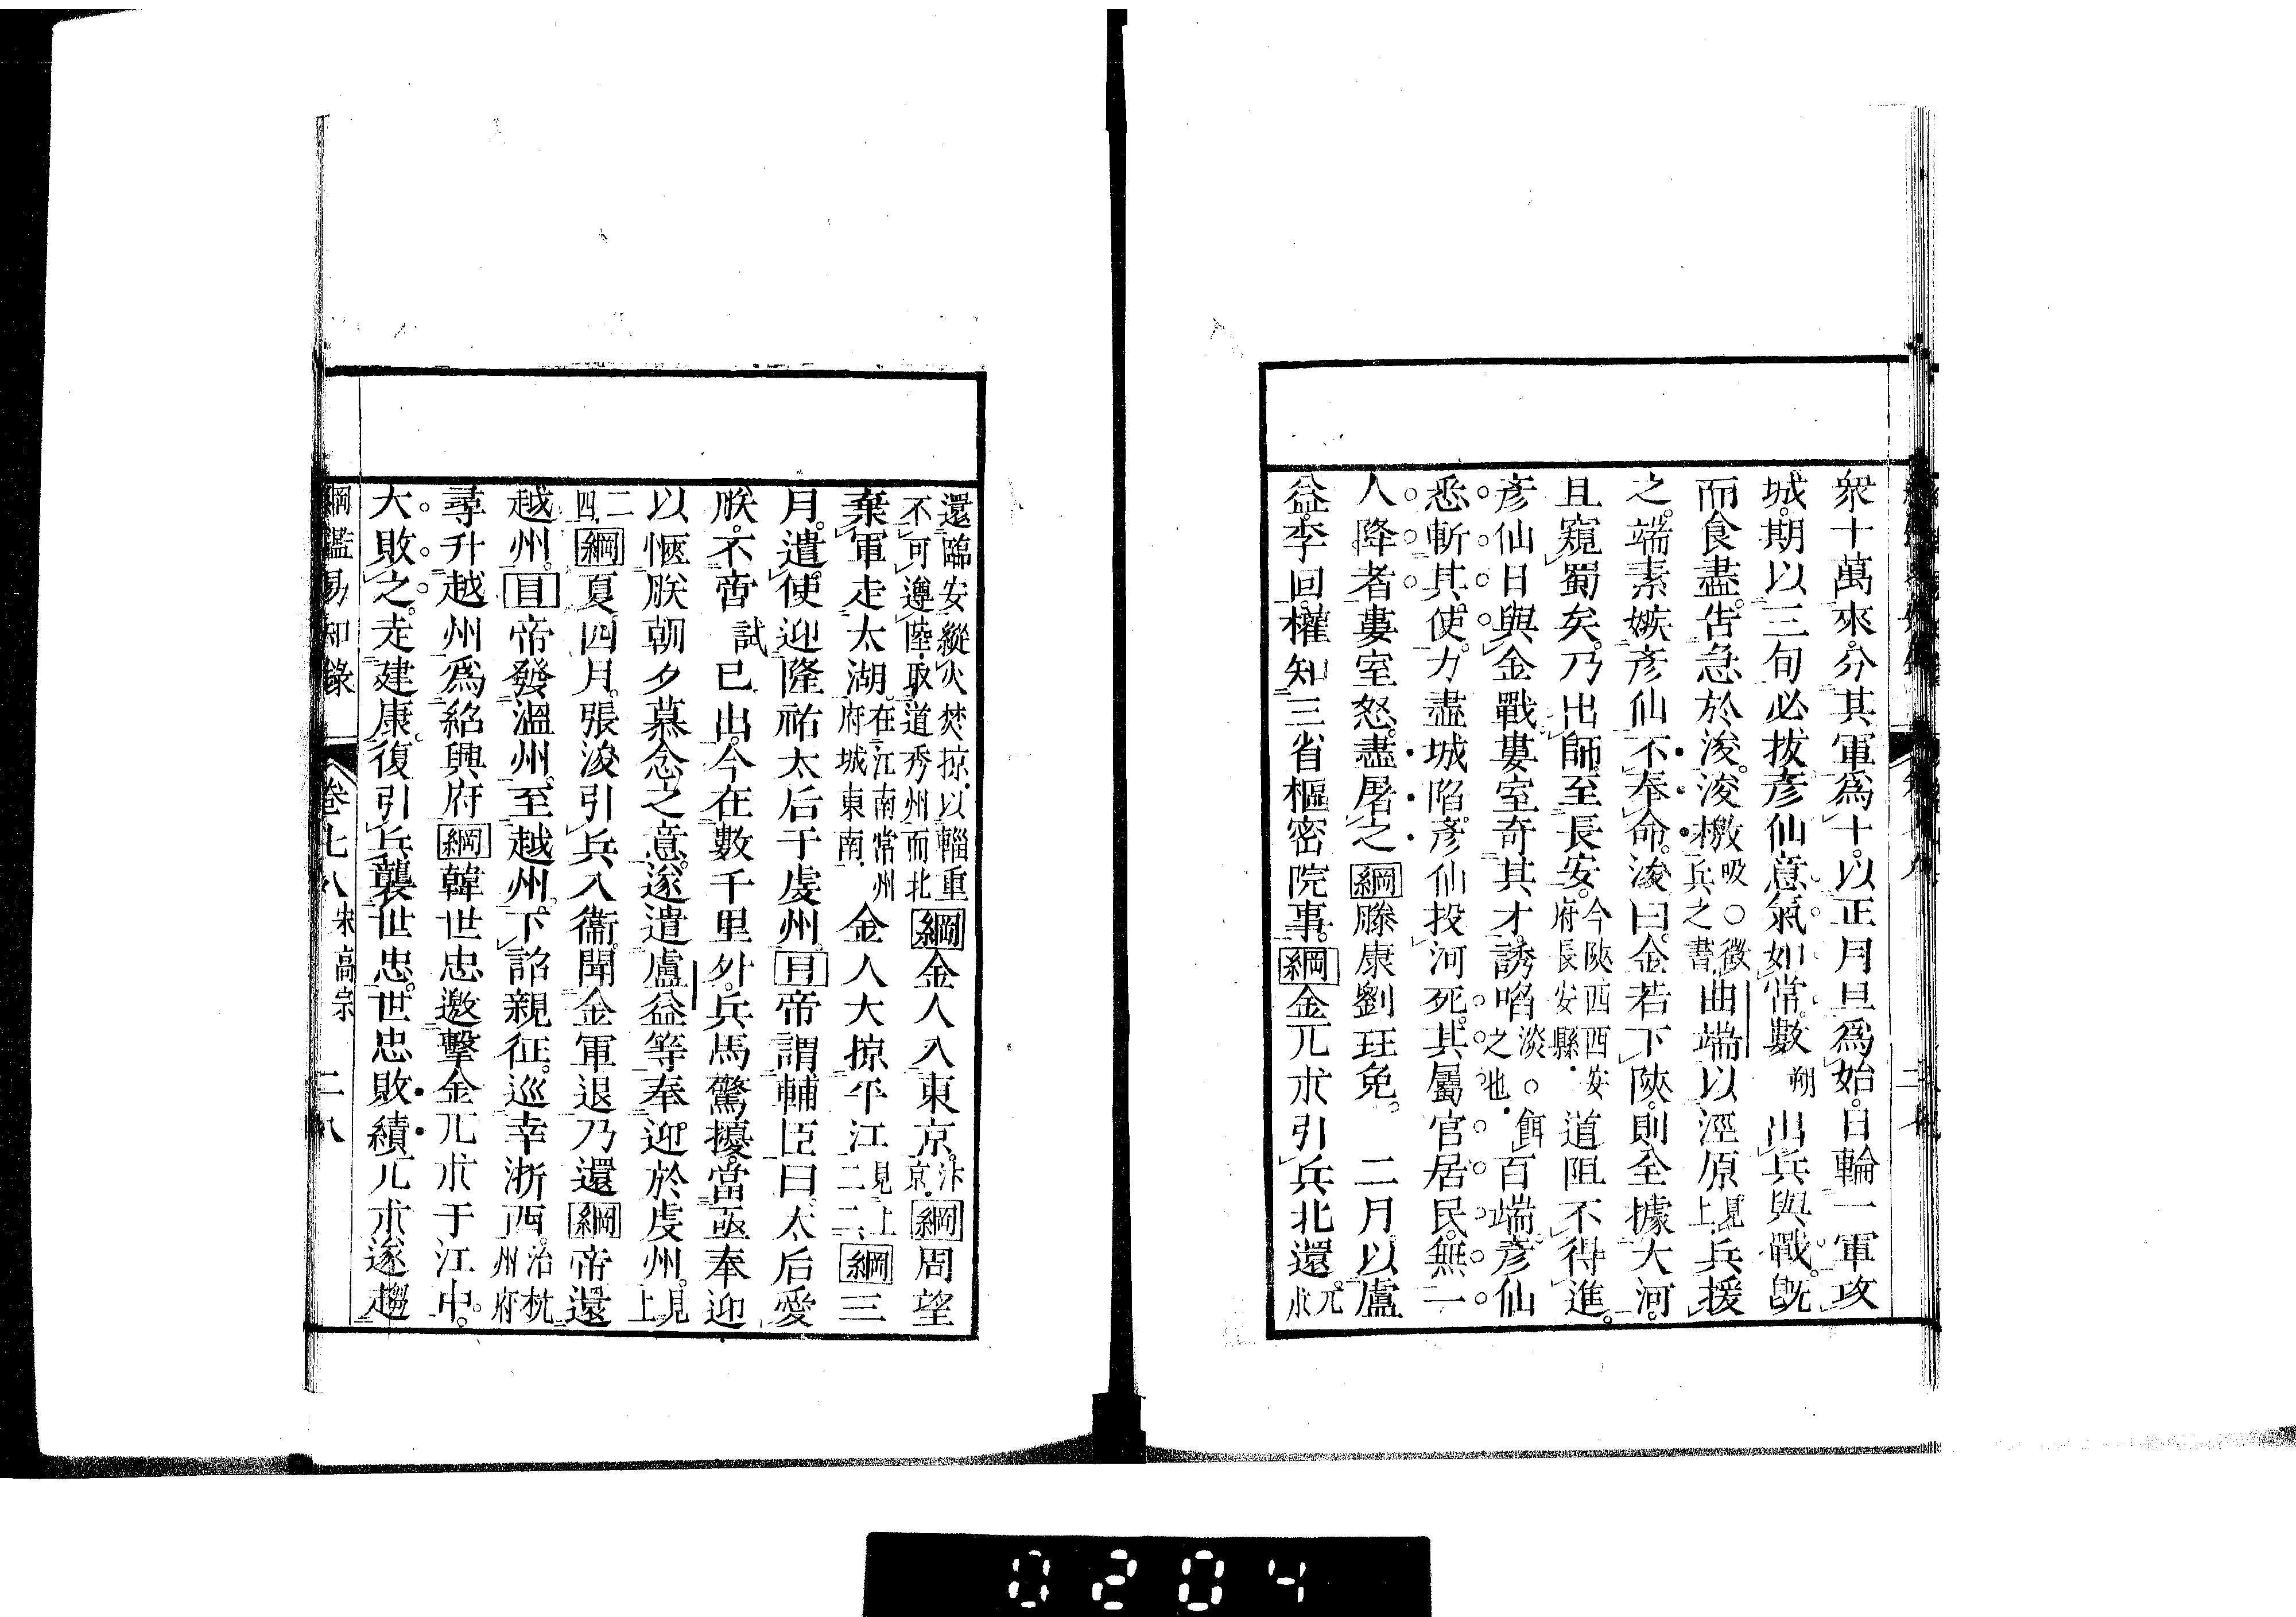 衆十萬來分其軍爲十以正月旦爲始日輪一軍攻
城期以三旬必拔彥仙意氣如常數朔出兵與戰旣
而食盡吿急於浚浚檄吸〇徵兵之書曲端以涇原見上兵援
之端素嫉彥仙不奉命浚曰金若下陝則全據大河
且窺蜀矣乃出師至長安今陝西西安府長安縣道阻不得進
彥仙日與金戰婁室奇其才誘啗淡〇餌之也百端彥仙
悉斬其使力盡城陷彥仙投河死其屬官居民無一
人降者婁室怒盡屠之綱滕康劉珏免 二月以盧
益李回權知三省樞密院事綱金兀朮引兵北還兀朮
還臨安縱火焚掠以輜重不可遵陸取道秀州而北綱金人入東京汴京綱周望
棄軍走太湖在江南常州府城東南金人大掠平江見上二二綱三
月遣使迎隆祐太后于虔州目帝謂輔臣曰太后愛
朕不啻試已出今在數千里外兵馬驚擾當亟奉迎
以愜朕朝夕慕念之意遂遣盧益等奉迎於虔州見上
二四綱夏四月張浚引兵入衞聞金軍退乃還綱帝還
越州目帝發溫州至越州下詔親征巡幸浙西治杭州府
尋升越州爲紹興府綱韓世忠邀擊金兀朮于江中
大敗之走建康復引兵襲世忠世忠敗績兀朮遂趨
綱鑑易知錄 卷七八 宋高宗 二八
0204